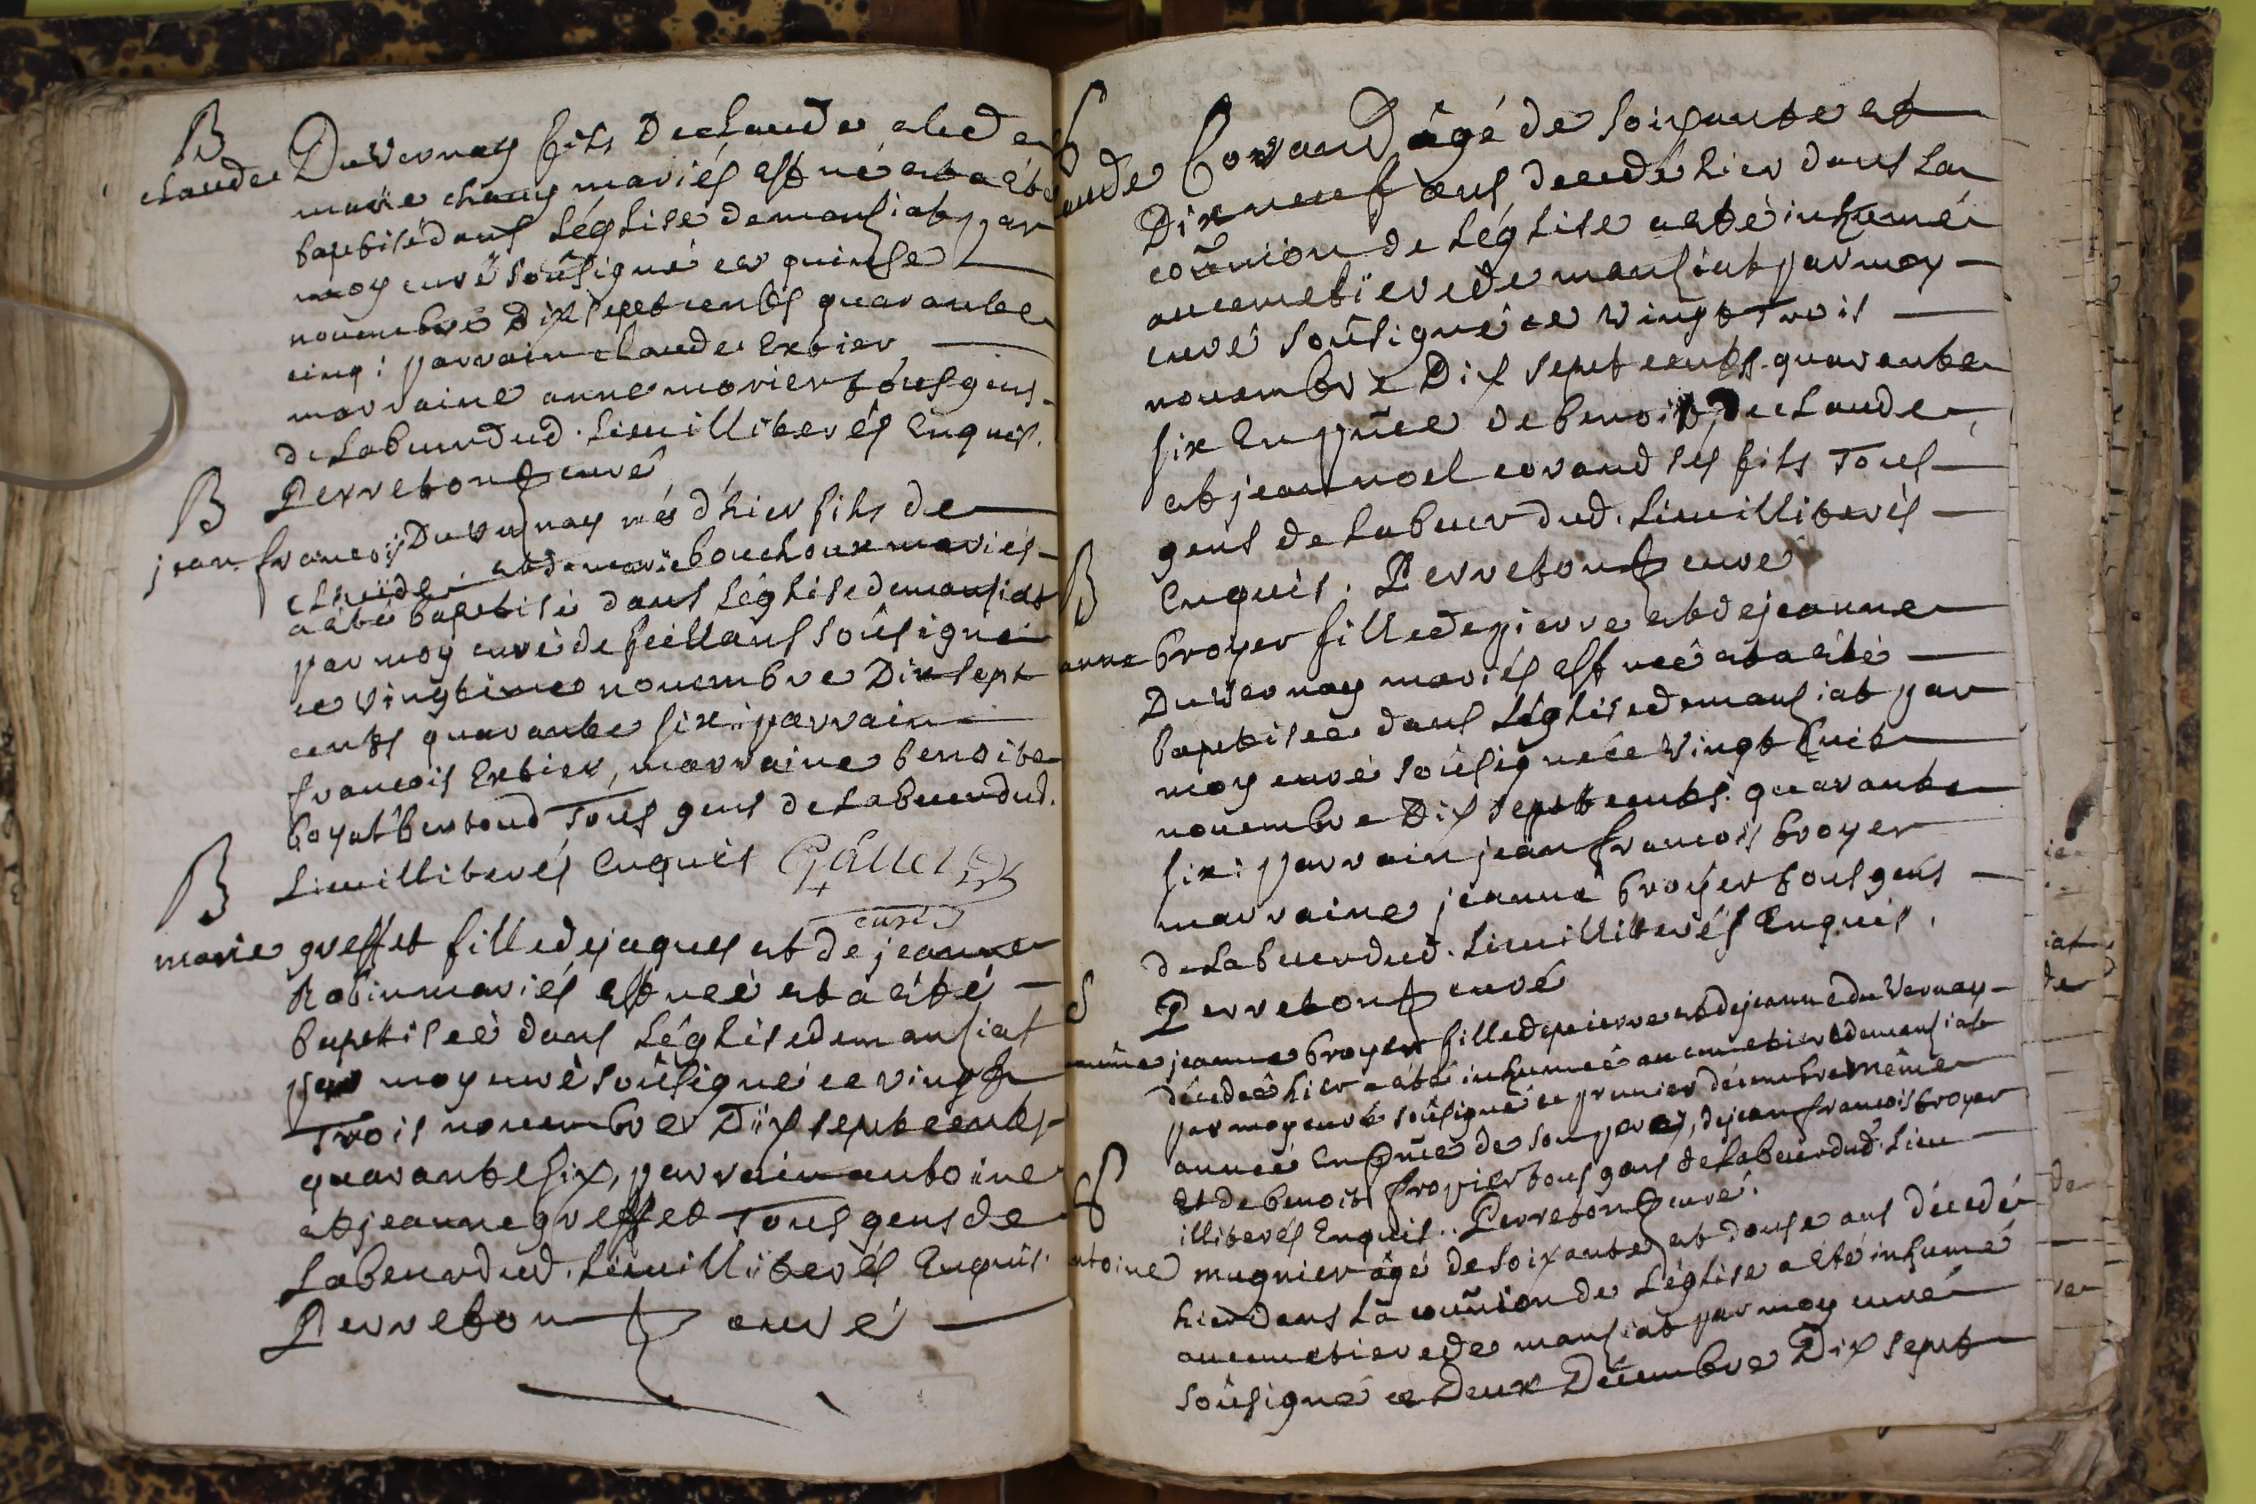 B
claude Duvernay fils de claude et de
marie chany mariés est né et a été
baptisé dans l'église de mansiat par
moy curé soûsigné ce quinse
novembre dix sept cents quarante
cinq: parrain claude Extier
marraine anne morier tous gens
de labeur dud. lieu illiterés Enquis.
Perreton curé
B
jean françois Duvernay né d'hier fils de
claude et de marie bouchoux mariés
a été baptisé dans l'église de mansiat
par moy curé de feillans soûsigné
ce vingtieme novembre Dix sept
cents quarante six: parrain
francois Extier, marraine benoite
boyat bertoud Tous gens de labeur dud.
lieu illiterés Enquis Gallet
curé
B
marie greffet fille de jaques et de jeanne
Robin mariés est neé et a été
baptiseé dans l'églisedemansiat
par moy curé soûsigné ce vingt
trois novembre Dix sept cents
quarante six, parrain antoine
et jeanne greffet Tous gens de
labeur dud. lieu illiterés Enquis.
Perreton curé
S
aude Corand âgé de soixante et
Dix neuf ans decedé hier dans la
com̃nion de l'église a été inhumé
au cemetiere de mansiat par moy
curé soûsigné ce vingt Trois
novembre Dix sept cents quarante
six En pñce de benoit, de claude,
et jean noel corand ses fils Tous
gens de labeur dud. lieu illiterés
Enquis. Perreton curé
B
anne broyer fille de pierre et de jeanne
Duvernay mariés est neé et a été
baptiseé dans l'église de mansiat par
moy curé soûsigné ce vingt huit
novembre Dix sept cents quarante
six: parrain jean francois broyer
marraine jeanne broyer tous gens
de labeur dud. lieu illiterés Enquis.
Perreton curé
S
anne jeanne broyer fille de pierre et de jeanne du Vernay
décedeé hier a été inhumeé au cemetiere de mansiat
par moy curé soûsigné ce premier décembre même
anneé En pñce de son pere, de jean francois broyer
Et de benoit fropier tous gens de labeur dud. lieu
illiterés Enquis. Perreton curé.
S
ntoine mugnier âgé de soixante et douse ans décedé
hier dans la com̃nion de l'église a été inhumé
au cemetiere de mansiat par moy curé
soûsigné ce Deux Décembre Dix sept